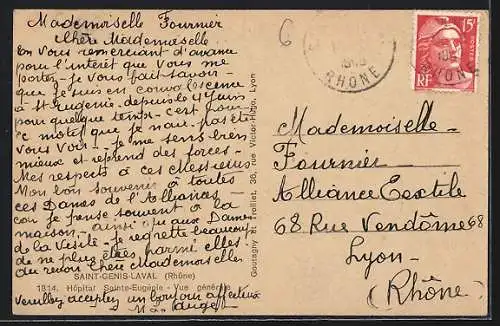 Mademoiselle Fournier
Chère Mademoiselle
En vous remerciant d'avance
pour l'intérêt que vous me
portez - je vous fait savoir -
que je suis en convalescence
à St Eugénie depuis le 4 juin
pour quelque temps - c'est pour
ce motif que je n'ai pas été
vous voir - je me sens bien
mieux et reprend des forces -
Mes respects à ces Messieurs
Mon bon souvenir à toutes
ces Dames de l'Alliance
car je pense souvent à la
maison - ainsi qu'aux Dames
de la Visite - je regrette beaucoup
de ne plus être parmi elles
au revoir Chère Mademoiselle
SAINT-GENIS-LAVAL (Rhône)
1814. Hôpital Sainte-Eugénie - Vue générale
Veuillez acceptez un bonjour affectueux
Goutagny et Troillet, 36, rue Victor-Hugo, Lyon
6
RHONE
15F
RF
Mademoiselle -
Fournier -
Alliance Textile
68 Rue Vendôme 68
Lyon -
(Rhône)